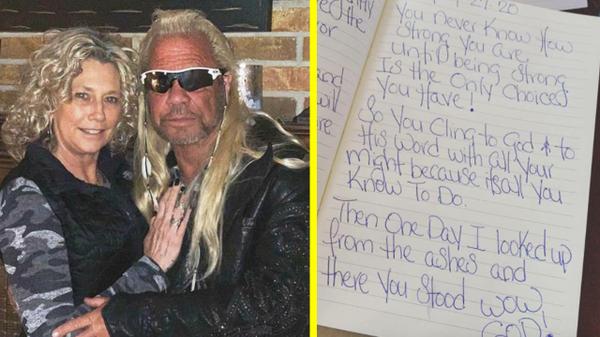 27-20
You never Know How
Strong You Are,
Until being Strong
Is the Only Choice
You Have!
So You Cling to God & to
His Word with all Your
might because its all You
Know To Do.
Then One Day I looked up
from the ashes and
there You Stood wow,
GOD!
ed the
or
and
re